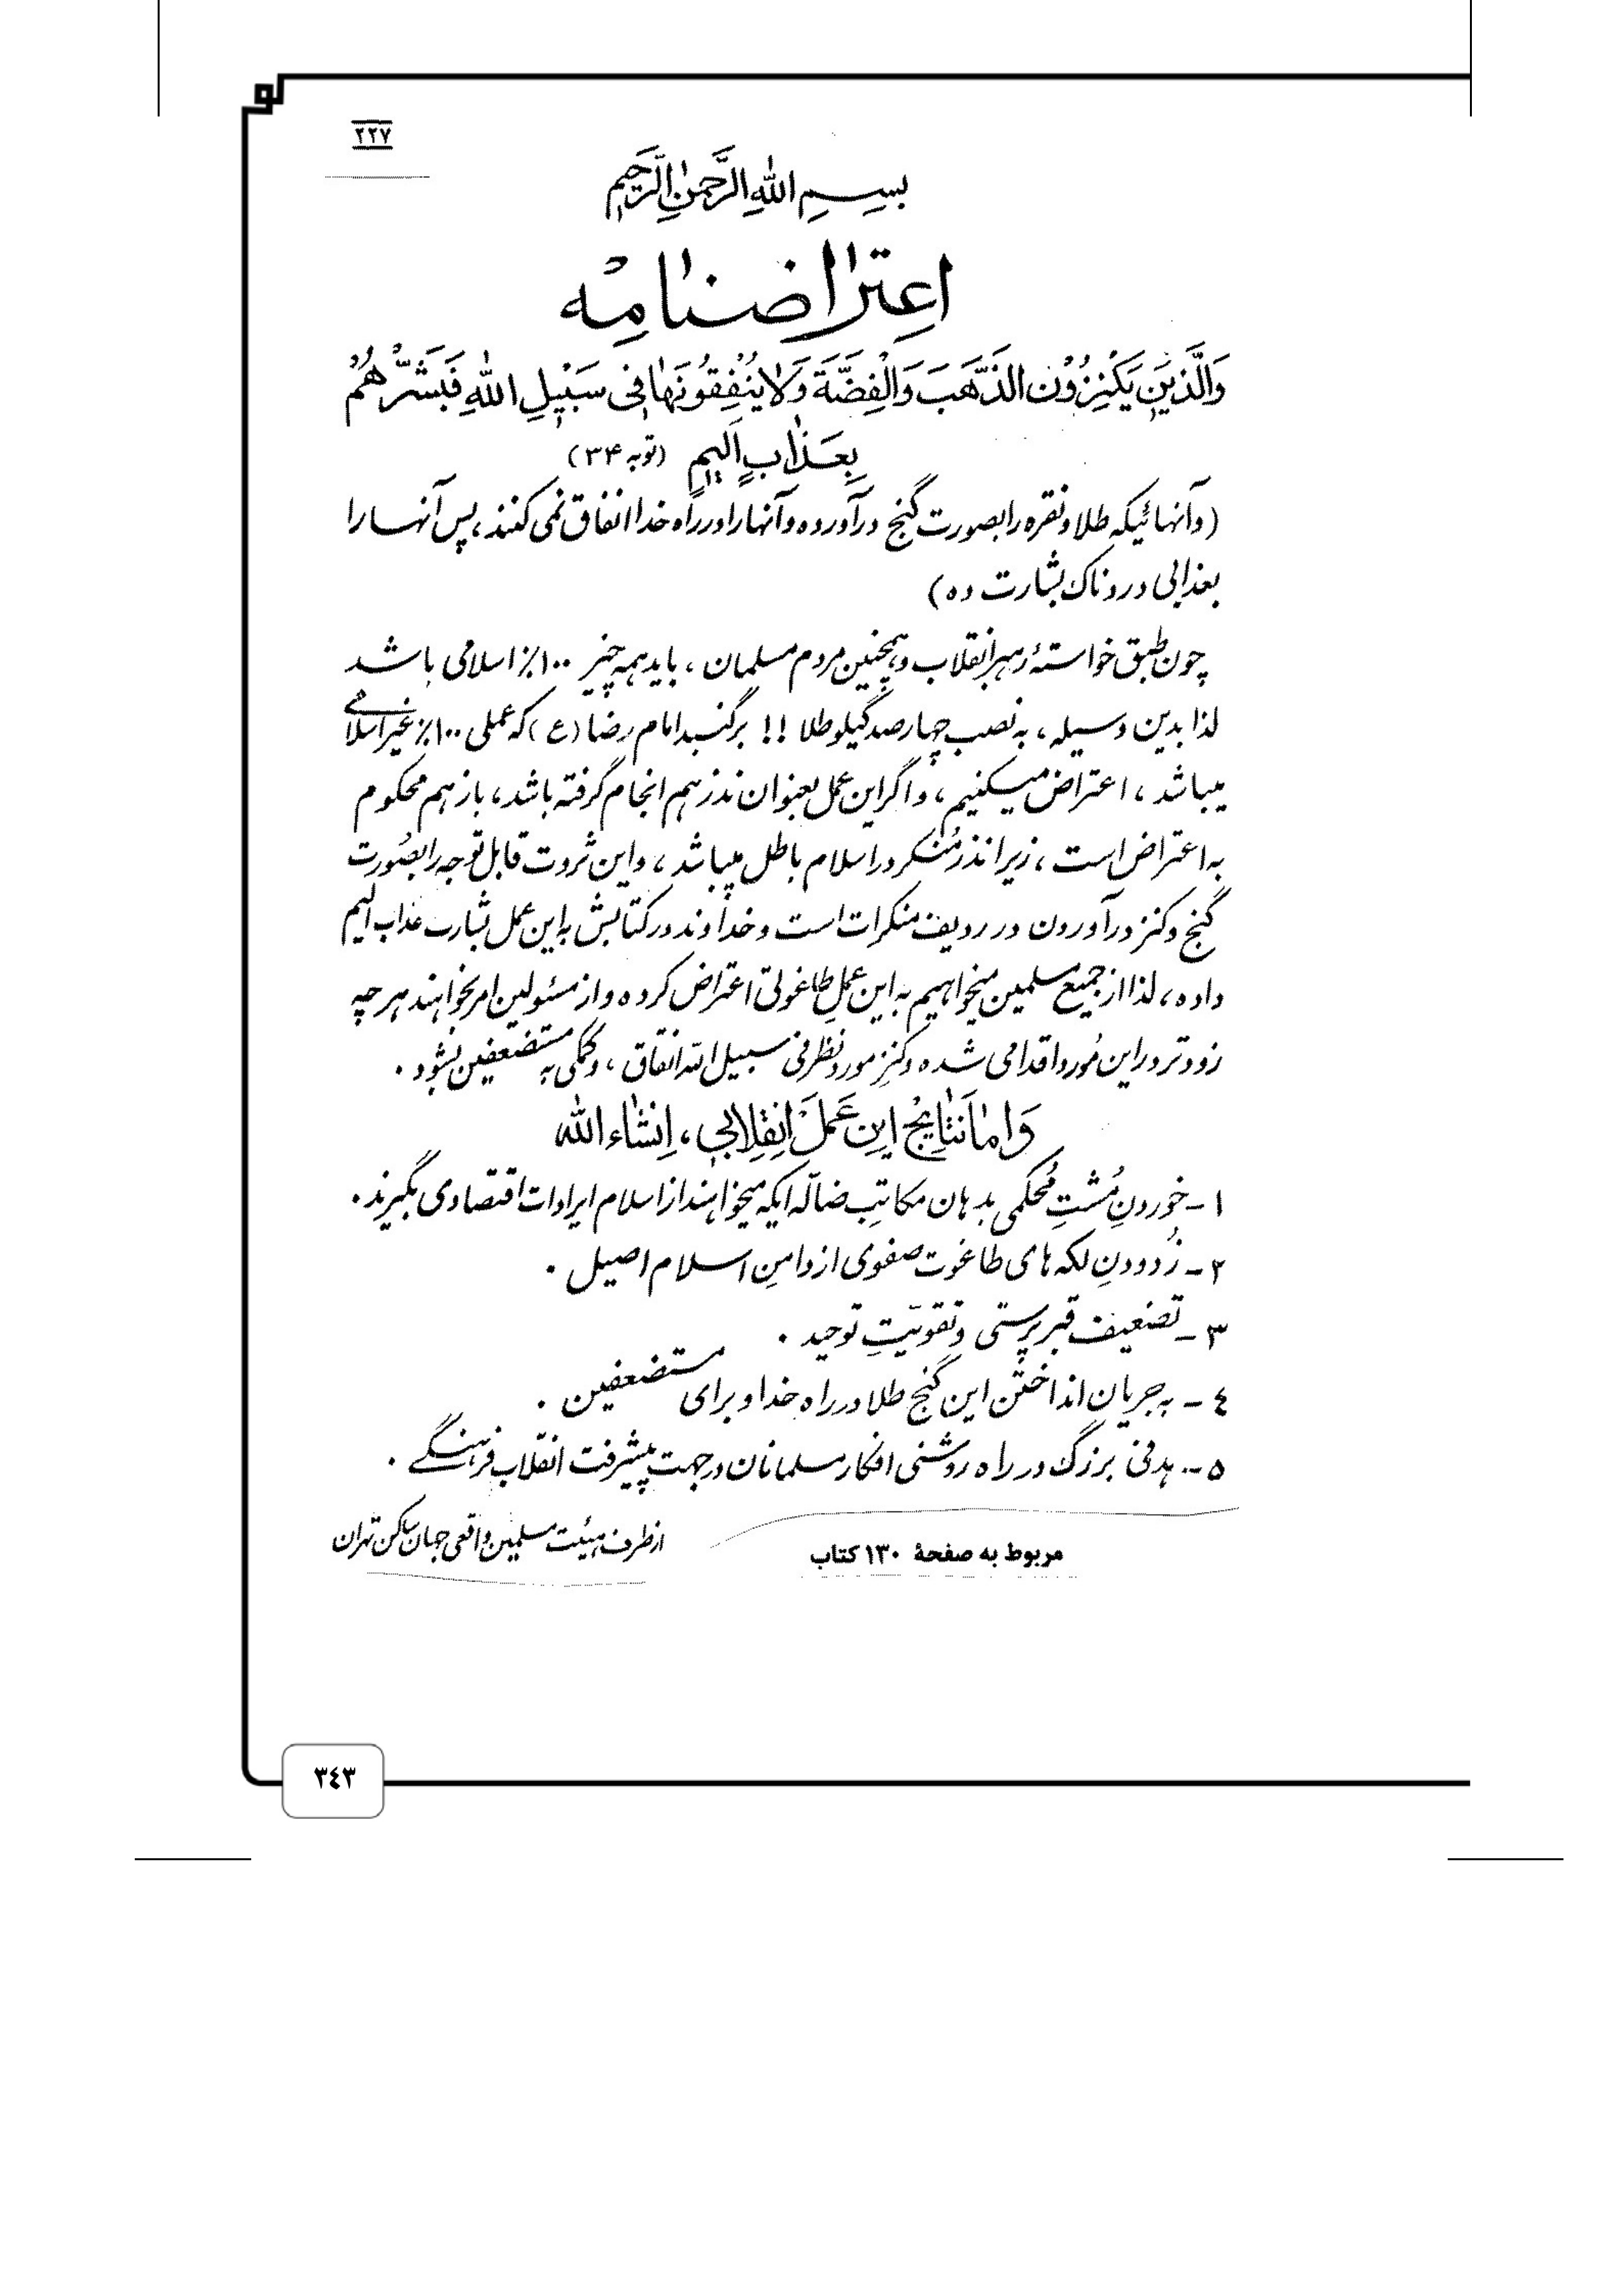 ۲۲۷
بسم الله الرحمن الرحیم
اعتراضنامه
وَالَّذینَ یَکْنِزُوْنَ الذَّهَبَ وَالْفِضَّةَ وَلایُنْفِقُونَهٰا فی سَبیْلِ اللهِ فَبَشَّرْهُمْ
بِعَذٰابٍ اَلیمٍ (توبه ۳۴)
(وآنهائیکه طلا ونقره را بصورت گنج درآورده وآنها را در راه خدا انفاق نمی کنند، پس آنها را
بعذابی دردناک بشارت ده)
چون طبق خواستهٔ رهبر انقلاب وهمچنین مردم مسلمان ، باید همه چیز ۱۰۰٪ اسلامی باشد
لذا بدین وسیله ، به نصب چهارصد کیلو طلا !! برگنبد امام رضا (ع) که عملی ۱۰۰٪ غیر اسلامی
میباشد ، اعتراض میکنیم ، واگر این عمل بعنوان نذر هم انجام گرفته باشد، باز هم محکوم
به اعتراض است ، زیرا نذر مُنکر در اسلام باطل میباشد ، واین ثروت قابل توجه را بصُورت
گنج وکنز درآورون در ردیف منکرات است وخداوند درکتابش به این عمل بشارت عذاب الیم
داده ، لذا از جمیع مسلمین میخواهیم به این عملِ طاغوتی اعتراض کرده واز مسئولین امر بخواهند هر چه
زودتر در این مُورد اقدامی شده وکنزِ مورد نظر فی سبیل الله انفاق ، وکمکی به مستضعفین بشود .
وَامٰا نَتٰایِجُ اینِ عَمَلَ اِنقِلابی ، اِنشٰاء الله
۱ - خوردنِ مُشتِ مُحکمی بدهان مکاتِبِ ضالّه ایکه میخواهند از اسلام ایرادات اقتصادی بگیرند .
۲ - زُدودنِ لکه های طاغوت صفوی از دامنِ اسلام اصیل .
۳ - تضعیف قبرپرستی وتقویّتِ توحید .
٤ - به جریان انداختن این گنج طلا در راه خدا و برای مستضعفین .
۵ -- هدفی بزرگ در راه روشنی افکار مسلمانان در جهت پیشرفت انقلاب فرهنگی .
از طرف هیئت مسلمین واقعی جهان ساکن تهران
مربوط به صفحهٔ ۱۳۰ کتاب
۳٤۳